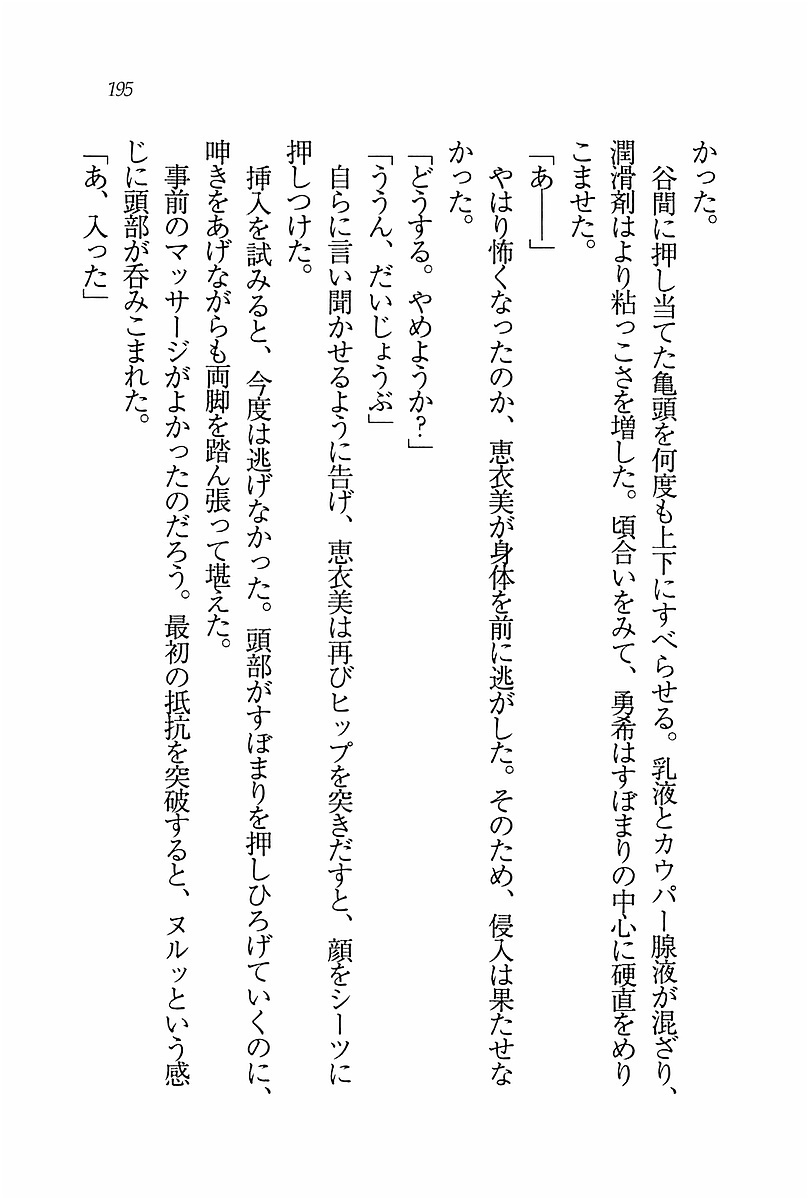 195
かった。
谷間に押し当てた亀頭を何度も上下にすべらせる。乳液とカウパー腺液が混ざり、
潤滑剤はより粘っこさを増した。頃合いをみて、勇希はすぼまりの中心に硬直をめり
こませた。
「あ――」
やはり怖くなったのか、恵衣美が身体を前に逃がした。そのため、侵入は果たせな
かった。
「どうする。やめようか?」
「ううん、だいじょうぶ」
自らに言い聞かせるように告げ、恵衣美は再びヒップを突きだすと、顔をシーツに
押しつけた。
挿入を試みると、今度は逃げなかった。頭部がすぼまりを押しひろげていくのに、
呻きをあげながらも両脚を踏ん張って堪えた。
事前のマッサージがよかったのだろう。最初の抵抗を突破すると、ヌルッという感
じに頭部が呑みこまれた。
「あ、入った」